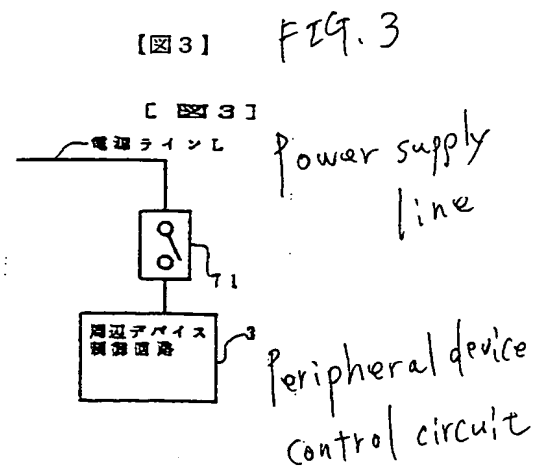 【図3】 FIG. 3
[図3]
電源ラインL
Power supply
line
71
周辺デバイス
制御回路
3
Peripheral device
control circuit